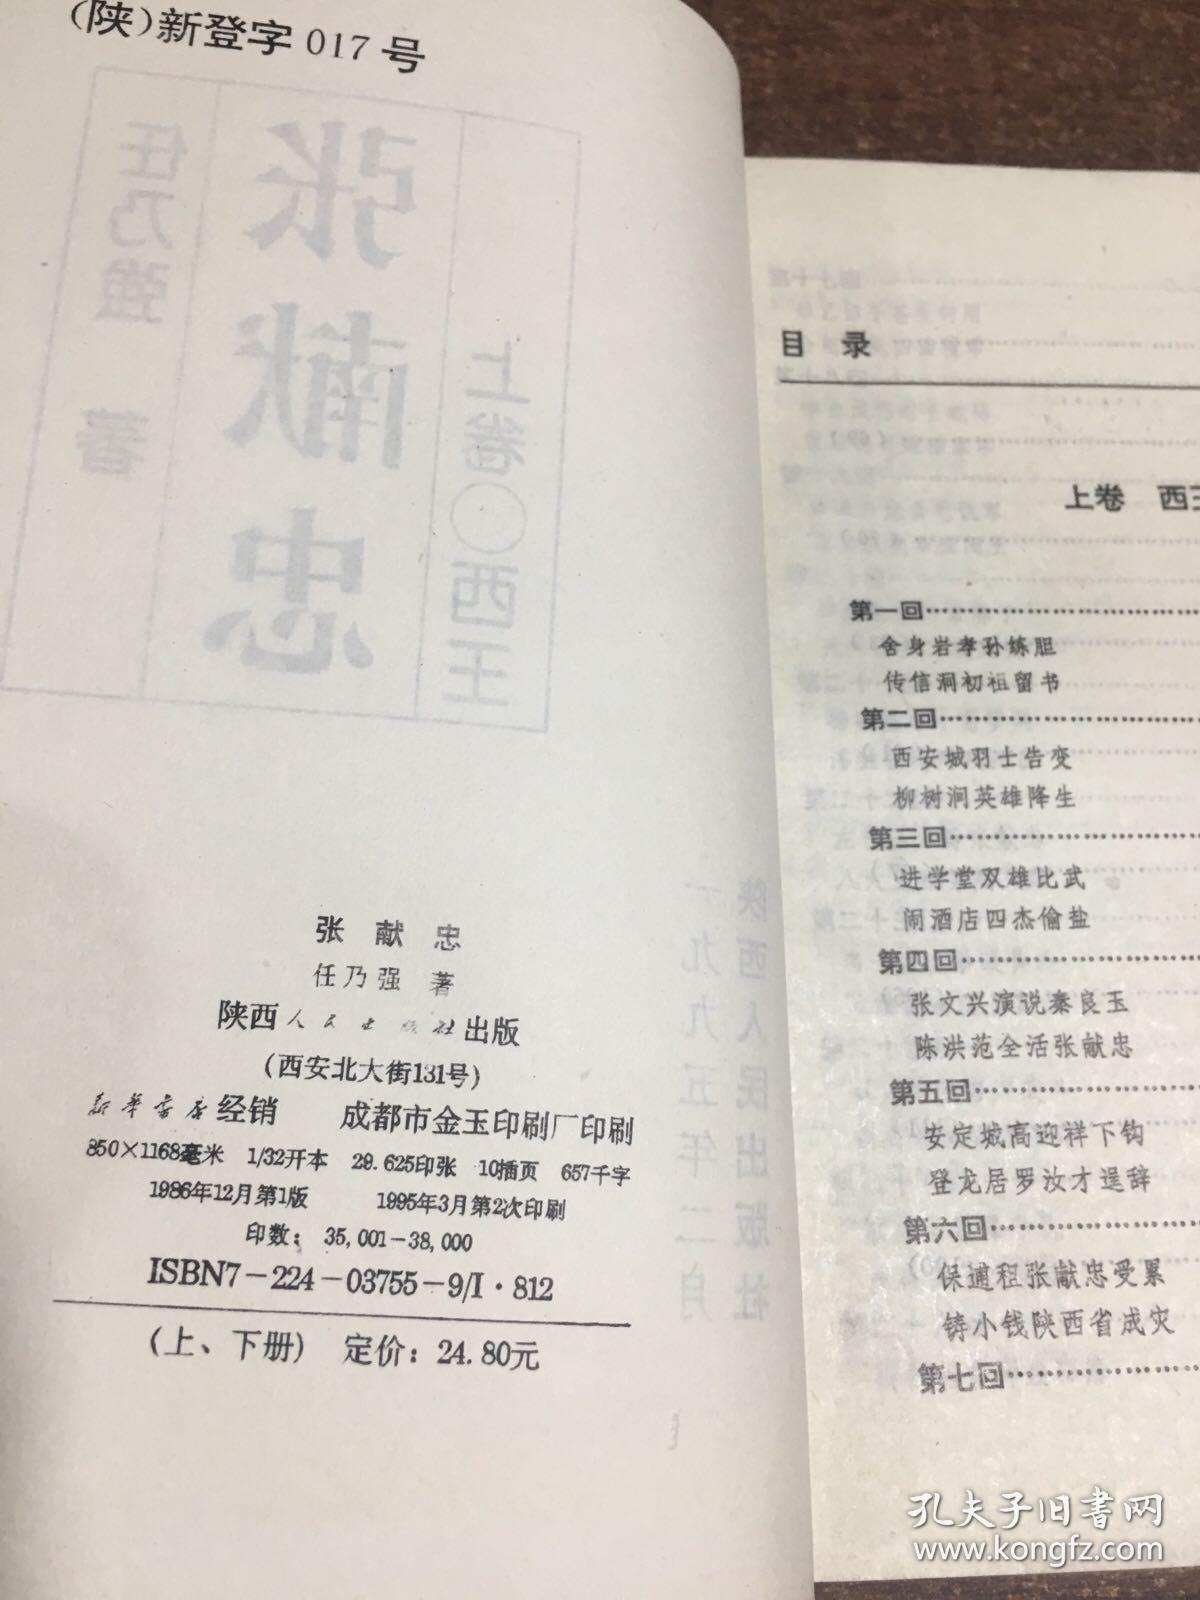 (陕)新登字 017 号
张献忠
任乃强 著
陕西人民出版社出版
(西安北大街131号)
新华书店经销 成都市金玉印刷厂印刷
850×1168毫米 1/32开本 29.625印张 10插页 657千字
1986年12月第1版 1995年3月第2次印刷
印数: 35,001-38,000
ISBN7-224-03755-9/I·812
(上、下册) 定价: 24.80元
上卷〇西王
张献忠
任乃強 著
陕西人民出版社
一九九五年二月
目 录
上卷 西王
第一回
舍身岩孝孙练胆
传信洞初祖留书
第二回
西安城羽士告变
柳树涧英雄降生
第三回
进学堂双雄比武
闹酒店四杰偷盐
第四回
张文兴演说秦良玉
陈洪范全活张献忠
第五回
安定城高迎祥下钩
登龙居罗汝才逞辞
第六回
保逋租张献忠受累
铸小钱陕西省成灾
第七回
孔夫子旧书网
www.kongfz.com